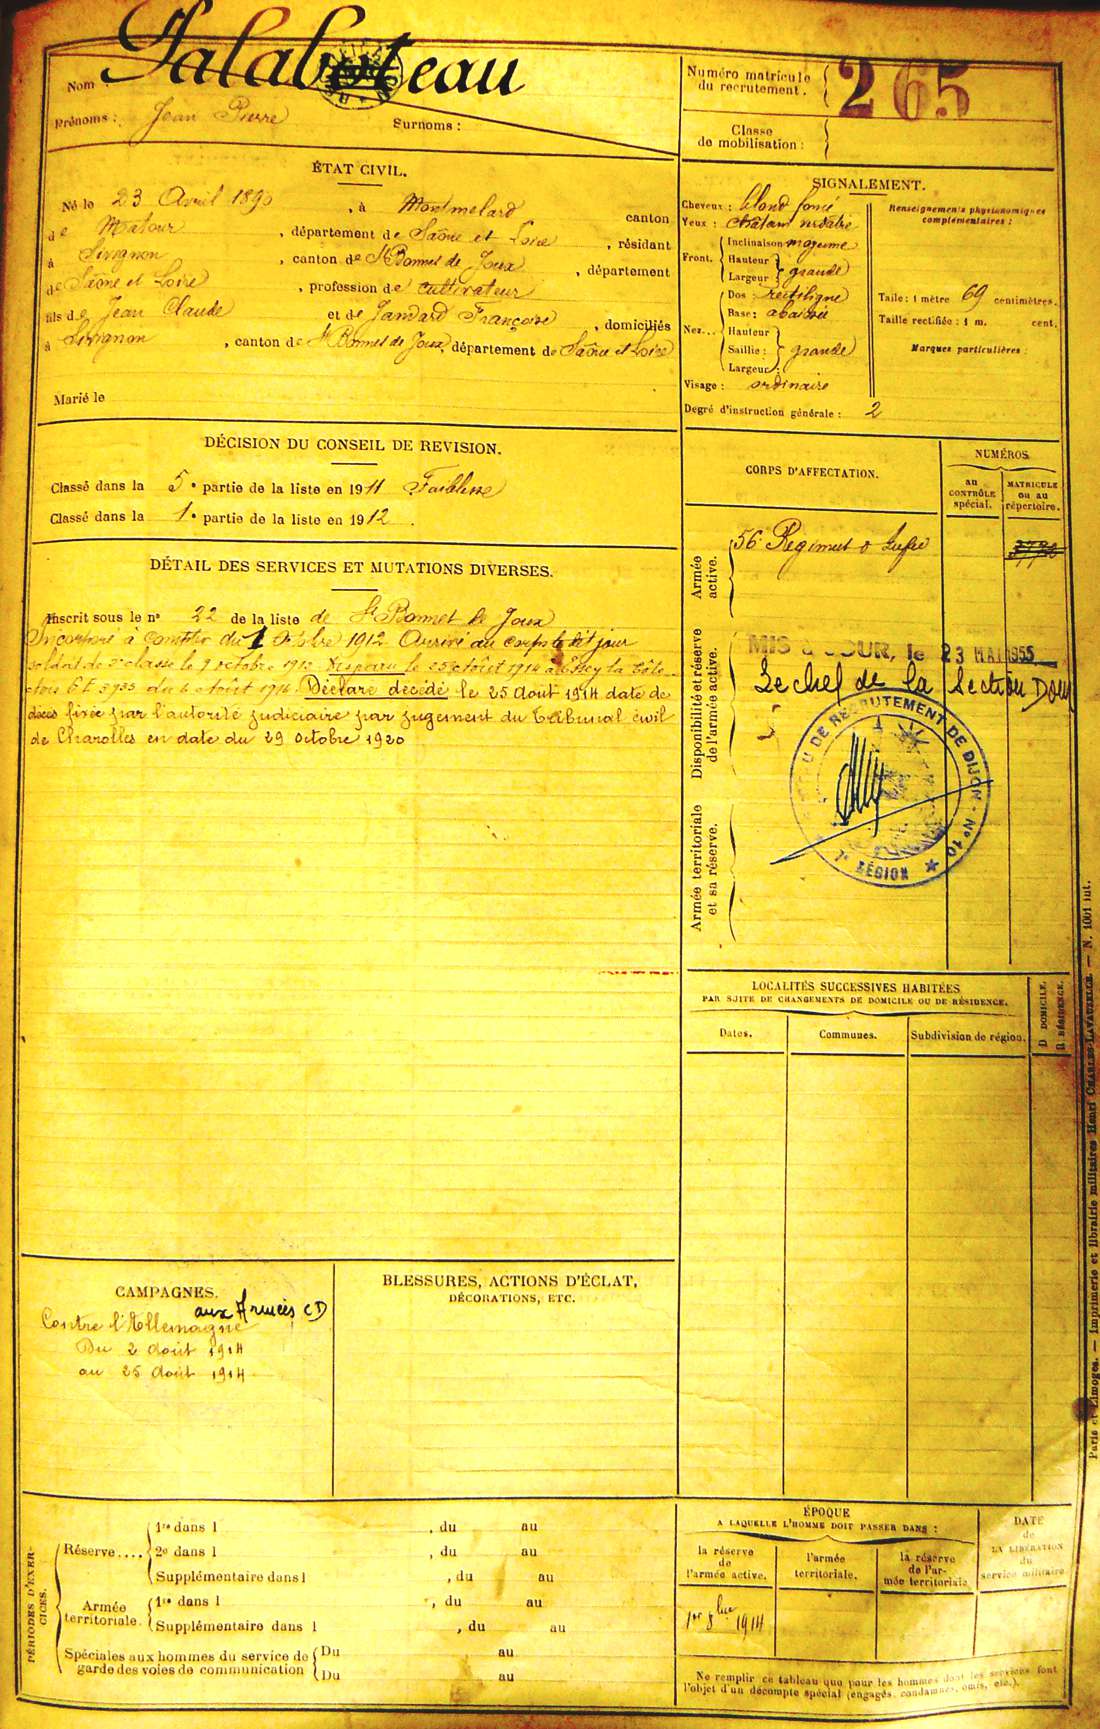 Nom
eau
Numéro matricule
du recrutement.
265
Prénoms : Jean Pierre
Surnoms :
Classe
de mobilisation :
ÉTAT CIVIL.
Né le 23 Avril 1890, à Montmelard canton
de Matour, département de Saône et Loire, résidant
à Sivignon, canton de St Bonnet de Joux, département
de Saône et Loire, profession de cultivateur
fils de Jean Claude et de Jandard Françoise, domiciliés
à Sivignon, canton de St Bonnet de Joux, département de Saône et Loire
Marié le
SIGNALEMENT.
Cheveux : blond foncé
Yeux :
Front. Inclinaison moyenne
Hauteur
Largeur grande
Nez... Dos : rectiligne
Base : abaissée
Hauteur
Saillie : grande
Largeur :
Visage : ordinaire
Renseignements physionomiques
complémentaires :
Taille : 1 mètre 69 centimètres.
Taille rectifiée : 1 m. cent.
Marques particulières :
Degré d'instruction générale : 2
DÉCISION DU CONSEIL DE REVISION.
Classé dans la 5e partie de la liste en 1911 Faiblesse
Classé dans la 1e partie de la liste en 1912.
DÉTAIL DES SERVICES ET MUTATIONS DIVERSES.
Inscrit sous le no 22 de la liste de St Bonnet de Joux
Incorporé à compter du 1 Octobre 1912 Arrivé au corps le dit jour
soldat de 2e classe le 9 octobre 1912 Disparu le 25 août 1914
du 6 Août 1916. Déclaré décédé le 25 août 1914 date de
décès fixée par l'autorité judiciaire par jugement du Tribunal civil
de Charolles en date du 29 octobre 1920
CORPS D'AFFECTATION.
NUMÉROS
au
CONTRÔLE
spécial.
MATRICULE
ou au
répertoire.
Armée
active.
56e Régiment d'Infie
Disponibilité et réserve
de l'armée active.
MIS A JOUR, le 23 MAI 1955
Le chef de la Section
BUREAU DE RECRUTEMENT DE DIJON - No 10
7e RÉGION
Armée territoriale
et sa réserve.
LOCALITÉS SUCCESSIVES HABITÉES
PAR SUITE DE CHANGEMENTS DE DOMICILE OU DE RÉSIDENCE.
Dates.
Communes.
Subdivision de région.
D. DOMICILE.
R. RÉSIDENCE.
CAMPAGNES.
aux Armées CD
Contre l'Allemagne
Du 2 Août 1914
au 25 Août 1914
BLESSURES, ACTIONS D'ÉCLAT,
DÉCORATIONS, ETC.
PÉRIODES D'EXER-
CICES.
Réserve.... 1re dans l , du au
2e dans l , du au
Supplémentaire dans l , du au
Armée
territoriale. 1re dans l , du au
Supplémentaire dans l , du au
Spéciales aux hommes du service de
garde des voies de communication
Du au
Du au
ÉPOQUE
A LAQUELLE L'HOMME DOIT PASSER DANS :
la réserve
de
l'armée active.
l'armée
territoriale.
la réserve
de l'ar-
mée territoriale
DATE
de
LA LIBÉRATION
du
service militaire
1er 8bre 1914
Ne remplir ce tableau que pour les hommes dont les services font
l'objet d'un décompte spécial (engagés, condamnés, omis, etc.).
Paris et Limoges. — Imprimerie et librairie militaires Henri CHARLES-LAVAUZELLE. — N. 1001 int.